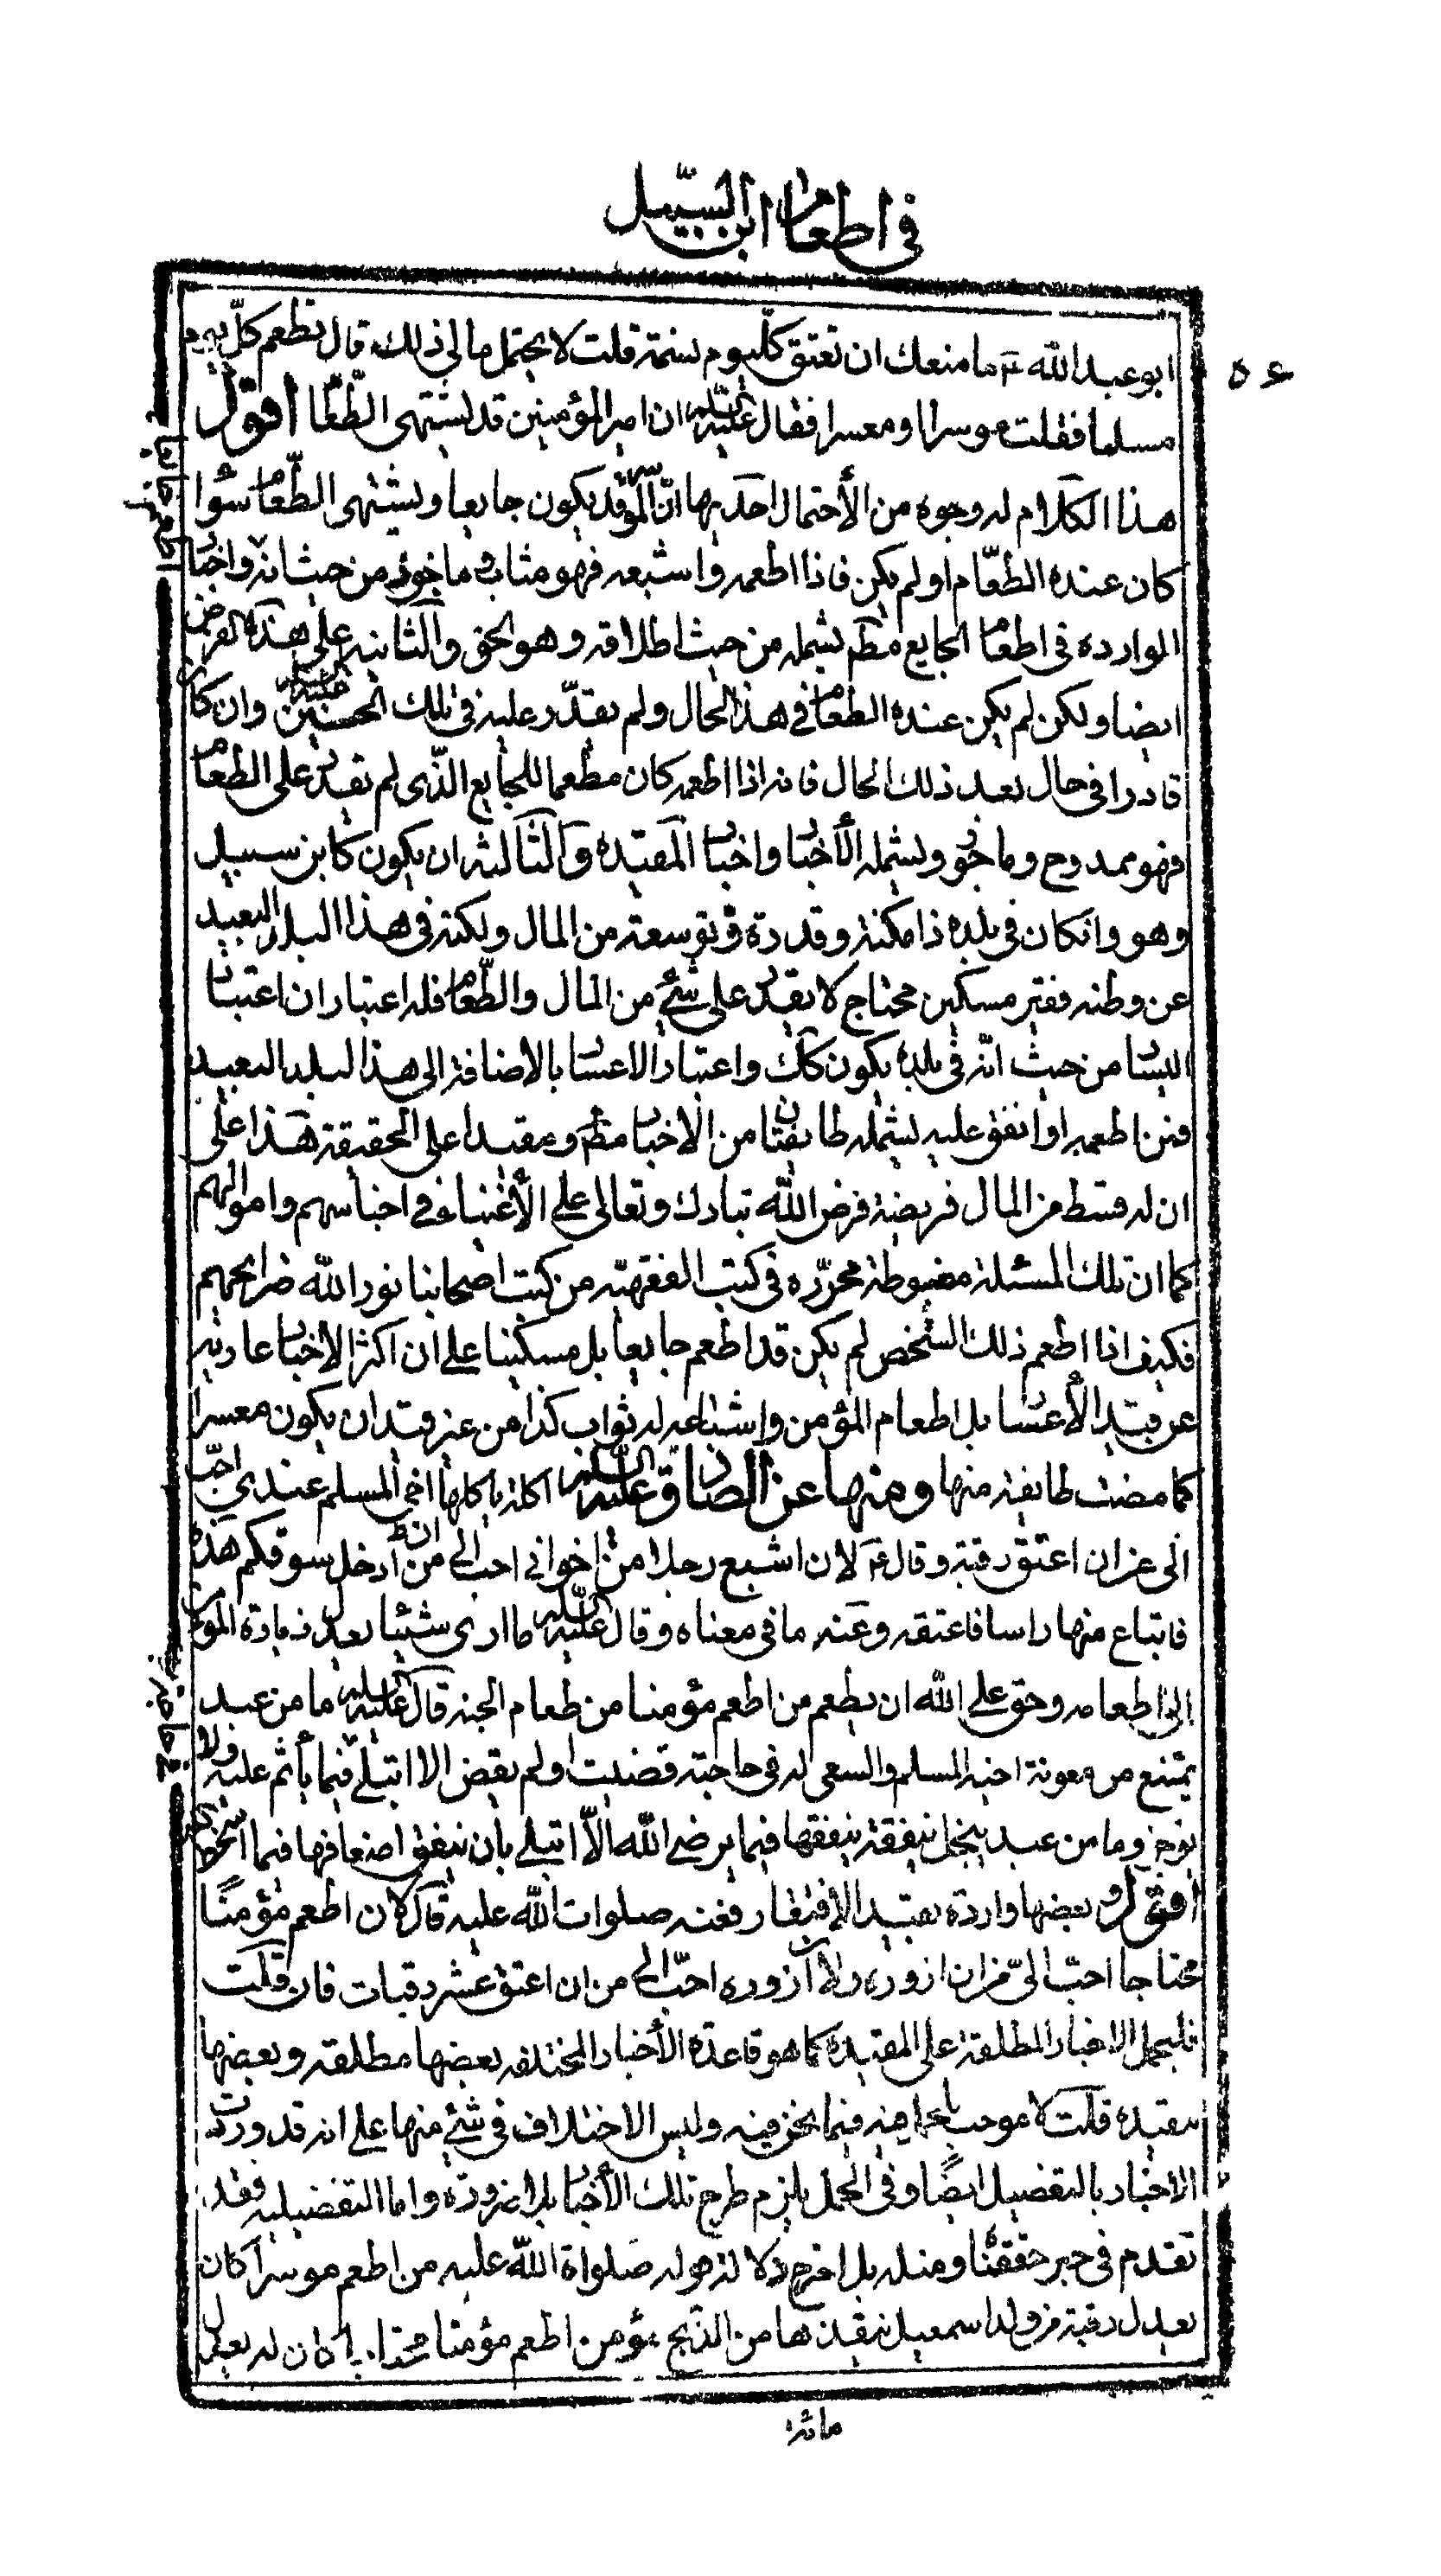 في اطعام ابن السبيل
ابو عبد الله ع ما منعك ان تعتق كل يوم نسمة قلت لا يحتمل مالي ذلك قال تطعم كل يوم
۵۶
مسلما فقلت موسرا و معسرا فقال عليه السلام ان امير المؤمنين قد يشتهى الطعام أقول
هذا الكلام له وجوه من الأحتمال احديها ان المؤمن قد يكون جايعا ويشتهى الطعام سواء
كان عنده الطعام او لم يكن فاذا اطعمه واشبعه فهو مثاب ماجور من حيث انه واخبار
الوارده في اطعام الجايع مطم يشمله من حيث اطلاقه وهو الحق والثانيه على هذه الفرض
ايضا ولكن لم يكن عنده الطعام في هذا الحال ولم يقدر عليه في تلك الحين وان كان
قادرا في حال بعد ذلك الحال فانه اذا اطعمه كان مطعما للجايع الذى لم يقدر على الطعام
فهو ممدوح وماجور ويشمله الأخبار واخبار المقيده والثالثه ان يكون كابن سبيل
وهو وانكان في بلده ذا مكنة وقدرة وتوسعة من المال ولكنه في هذا البلد البعيد
عن وطنه فقير مسكين محتاج لا يقدر على شئ من المال والطعام فله اعتباران اعتبار
اليسار من حيث انه في بلده يكون كك واعتبار الاعسار بالاضافة الى هذا البلد البعيد
فمن اطعمه او انفق عليه يشمله طايفتان من الاخبار مطم ومقيدا على الحقيقة هذا على
ان له قسط من المال فريضة فرض الله تبارك وتعالى على الأغنياء في اجناسهم واموالهم
كما ان تلك المسئلة مضبوطة محررة في كتب الفقهيه من كتب اصحابنا نور الله ضرايحهم
فكيف اذا اطعم ذلك الشخص لم يكن قد اطعم جايعا بل مسكينا على ان اكثر الاخبار عارية
عن قيد الأعسار بل اطعام المؤمن واشباعه له ثواب كذا من غير قيد ان يكون معسرا
كما مضت طايفة منها ومنها عن الصادق عليه السلام اكلة ياكلها اخى المسلم عندي احب
الى من ان اعتق رقبة وقال ع لان اشبع رجلا من اخواني احب الى من ان ادخل سوقكم هذه
فابتاع منها راسا فاعتقه وعنه ما في معناه وقال عليه السلام ما ارى شيئا يعدل زيارة المؤمن
الا اطعامه وحق على الله ان يطعم من اطعم مؤمنا من طعام الجنة قال عليه السلام ما من عبد
يمتنع من معونة اخيه المسلم والسعى له في حاجته قضيت اولم يقض الا ابتلى فيما يأثم عليه ولا
يوجر وما من عبد يبخل بنفقة ينفقها فيما يرضى الله الا ابتلى بان ينفق اضعافها فيما اسخط
أقول و بعضها واردة بقيد الافتقار فعنه صلوات الله عليه قال لان اطعم مؤمنًا
محتاجا احب الى من ان ازوره ولان ازوره احب الى من ان اعتق عشر رقبات فان قلت
فليحمل الاخبار المطلقة على المقيده كما هو قاعدة الأخبار المختلفه بعضها مطلقه وبعضها
مقيده قلت لا موجب فيما نحن فيه وليس الاختلاف في شئ منها على انه قد وردت
الاخبار بالتفصيل ايضًا وفي الحمل يلزم طرح تلك الأخبار بلا ضرورة واما التفضيليه فقد
تقدم في خبر حققنا ومثله بل اخرج دلالة قوله صلواة الله عليه من اطعم موسرا كان
يعدل رقبة من ولد اسمعيل ينقذها من الذبح ومن اطعم مؤمنا محتاجا كان له يعدل
مائة